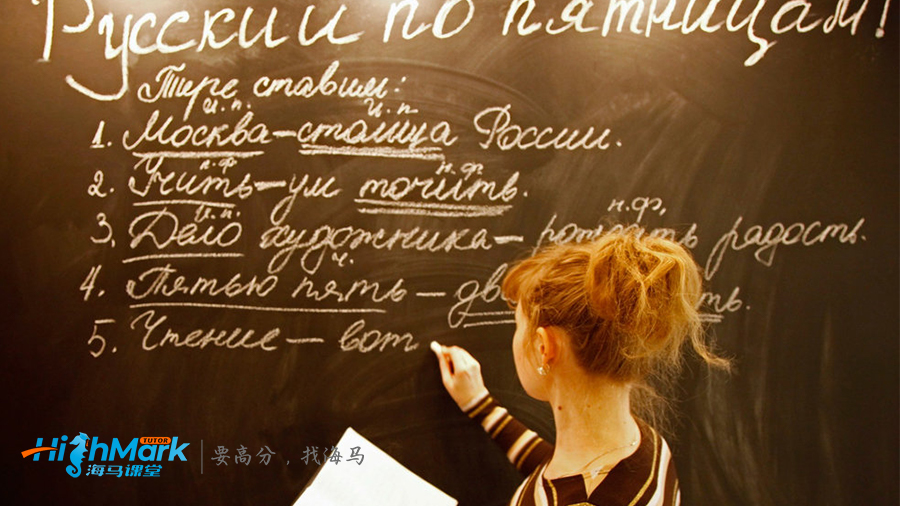 Русский по пятницам!
Тире ставим:
и.п. и.п.
1. Москва – столица России.
н.ф н.ф.
2. Учить – ум точить.
и.п. н.ф.
3. Дело художника – радость.
ч.
4. Пятью пять –
5. Чтение – вот
HighMark TUTOR
海马课堂
要高分，找海马